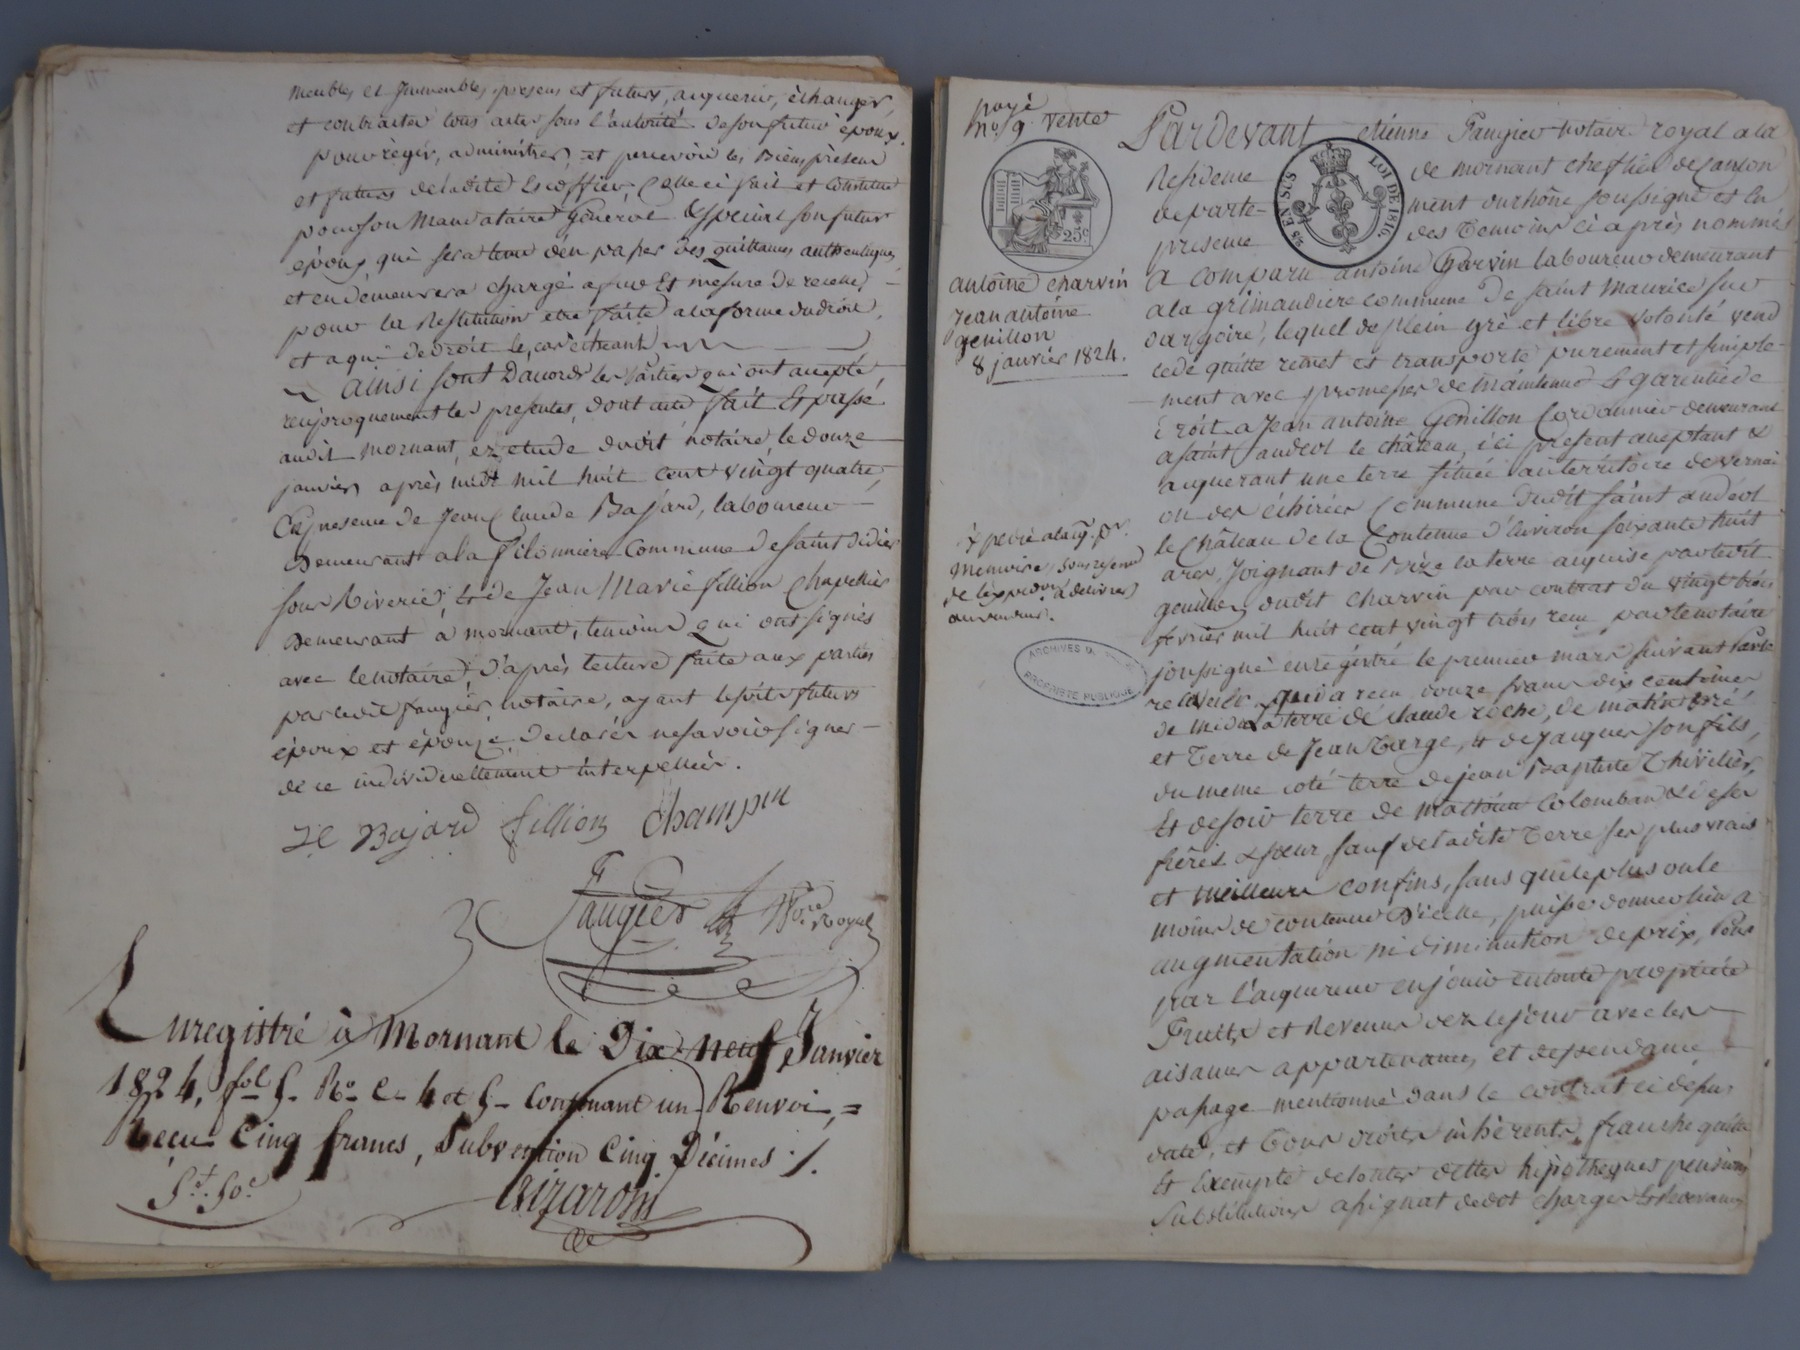 meubles et immeubles, présens et futurs, acquerir, échanger
et contracter tous actes sous l'autorité de son futur époux.
pour régir, administrer, et percevoir les Biens présens
et futurs de ladite Escoffier, Celle ci fait et constitue
pour son Mandataire général & spécial son futur
époux qui sera tenu d'en passer des quittances authentiques,
et en demeurera chargé a fur et mesure de recette,
pour la Restitution etre faite a la forme du droit,
et a qui de droit le cas échéant
ainsi sont D'accord les parties qui ont accepté
reciproquement les presentes, dont acte fait et passé
audit mornant, ez etude dudit notaire, le douze
janvier après midi mil huit cent vingt quatre,
En presence de Jean Claude Bajard, laboureur
Demeurant a la filonnière Commune de saint didier
sous Riverie, et de Jean Marie fillion Chapellier
Demeurant à mornant, temoins qui ont signés
avec le notaire d'après lecture faite aux parties
par ledit faugier notaire, ayant lesdits futurs
époux et épouze déclarés ne savoir signer
de ce individuellement interpellés.
JC Bajard fillion Champin
Faugier Nre Royal
Enregistré à Mornant le Dix-neuf Janvier
1824, fol 5. Ro. C. 4 et 5. Contenant un Renvoi,
Recu Cinq francs, Subvention Cinq Décimes ./.
payé
no. 9 vente
25c
antoine charvin
Jean antoine
genillon
8 janvier 1824.
Expédié a la
Memoire sous réserve
de l'expédon à délivrer
au vendeur.
ARCHIVES
PROPRIETE PUBLIQUE
25 EN SUS LOI DE 1816.
Pardevant etiénne Faugier notaire royal a la
Residence de mornant chef lieu de Canton
departe- ment du rhône soussigné et en
presence des temoins ci après nommés
a comparu antoine Charvin laboureur demeurant
a la grimaudiere commune de saint Maurice sur
dargoire, lequel de plein gré et libre volonté vend
cede quitte remet et transporte purement et simple-
ment avec promesses de maintenue et garentie de
droit a Jean antoine Genillon Cordonnier demeurant
a saint andéol le château, ici present acceptant &
acquerant une terre située au territoire de vernai
ou des échirées Commune dudit saint andéol
le château de la Contenue d'environ soixante huit
ares, Joignant de bize la terre acquise par ledit
genillon dudit charvin par contrat du vingt trois
fevrier mil huit cent vingt trois recu par le notaire
soussigné enregistré le premier mars suivant par le
receveur qui a recu douze francs dix centimes
de midi a terre de claude roche, de matin pré
et terre de Jean Targe, et de Jacques son fils,
du meme coté terre de jean Baptiste Thivilier,
et de soir terre de Mathieu Colomban & de ses
frères & sœur, sauf de ladite terre ses plus vrais
et meilleurs confins, sans que le plus ou le
moins de contenue d'icelle, puisse donner lieu a
augmentation ni diminution de prix, Pour
par l'acquereur en jouir en toute propriété
Fruits et Revenus dez ce jour avec les
aisances appartenances et dépendance
passage mentionné dans le contrat ci dessus
daté, et tous droits inhérents, franche quitte
et Exempte de toutes dettes hipotheques pensions
substitutions assignat de dot charges et Redevances